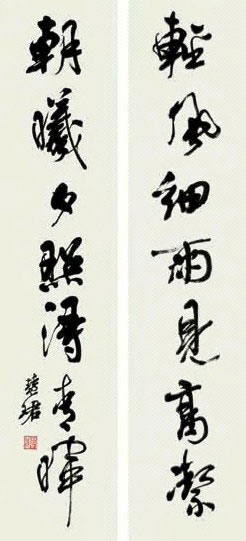 輕風細雨見高潔
朝曦夕照得清暉
楚珺